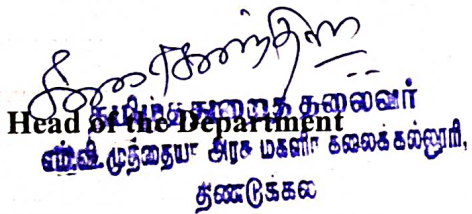 தமிழ்த்துறைத் தலைவர்
Head of the Department
எம்.வி.முத்தையா அரசு மகளிர் கலைக்கல்லூரி,
திண்டுக்கல்